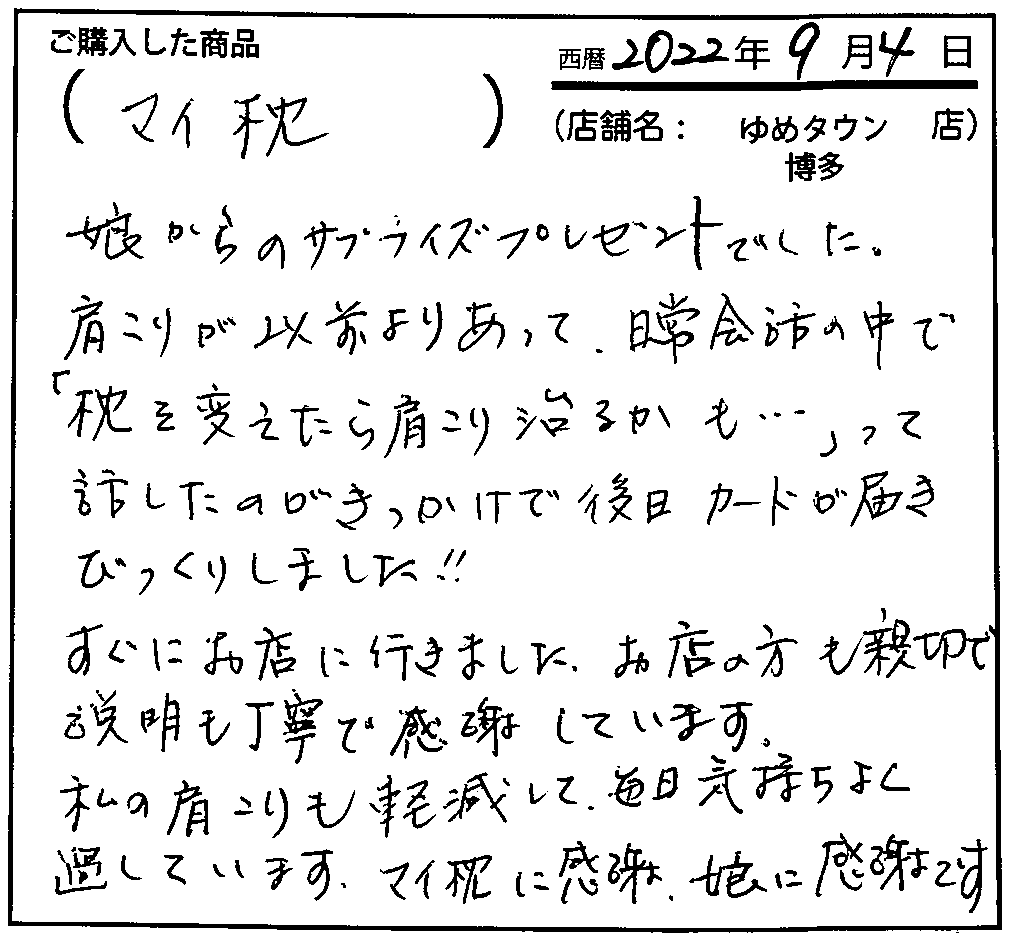 ご購入した商品
(マイ枕)
西暦2022年9月4日
(店舗名: ゆめタウン 店)
博多
娘からのサプライズプレゼントでした。
肩こりが以前よりあって、日常会話の中で
「枕を変えたら肩こり治るかも…」って
話したのがきっかけで後日カードが届き
びっくりしました!!
すぐにお店に行きました。お店の方も親切で
説明も丁寧で感謝しています。
私の肩こりも軽減して、毎日気持ちよく
過しています。マイ枕に感謝、娘に感謝です